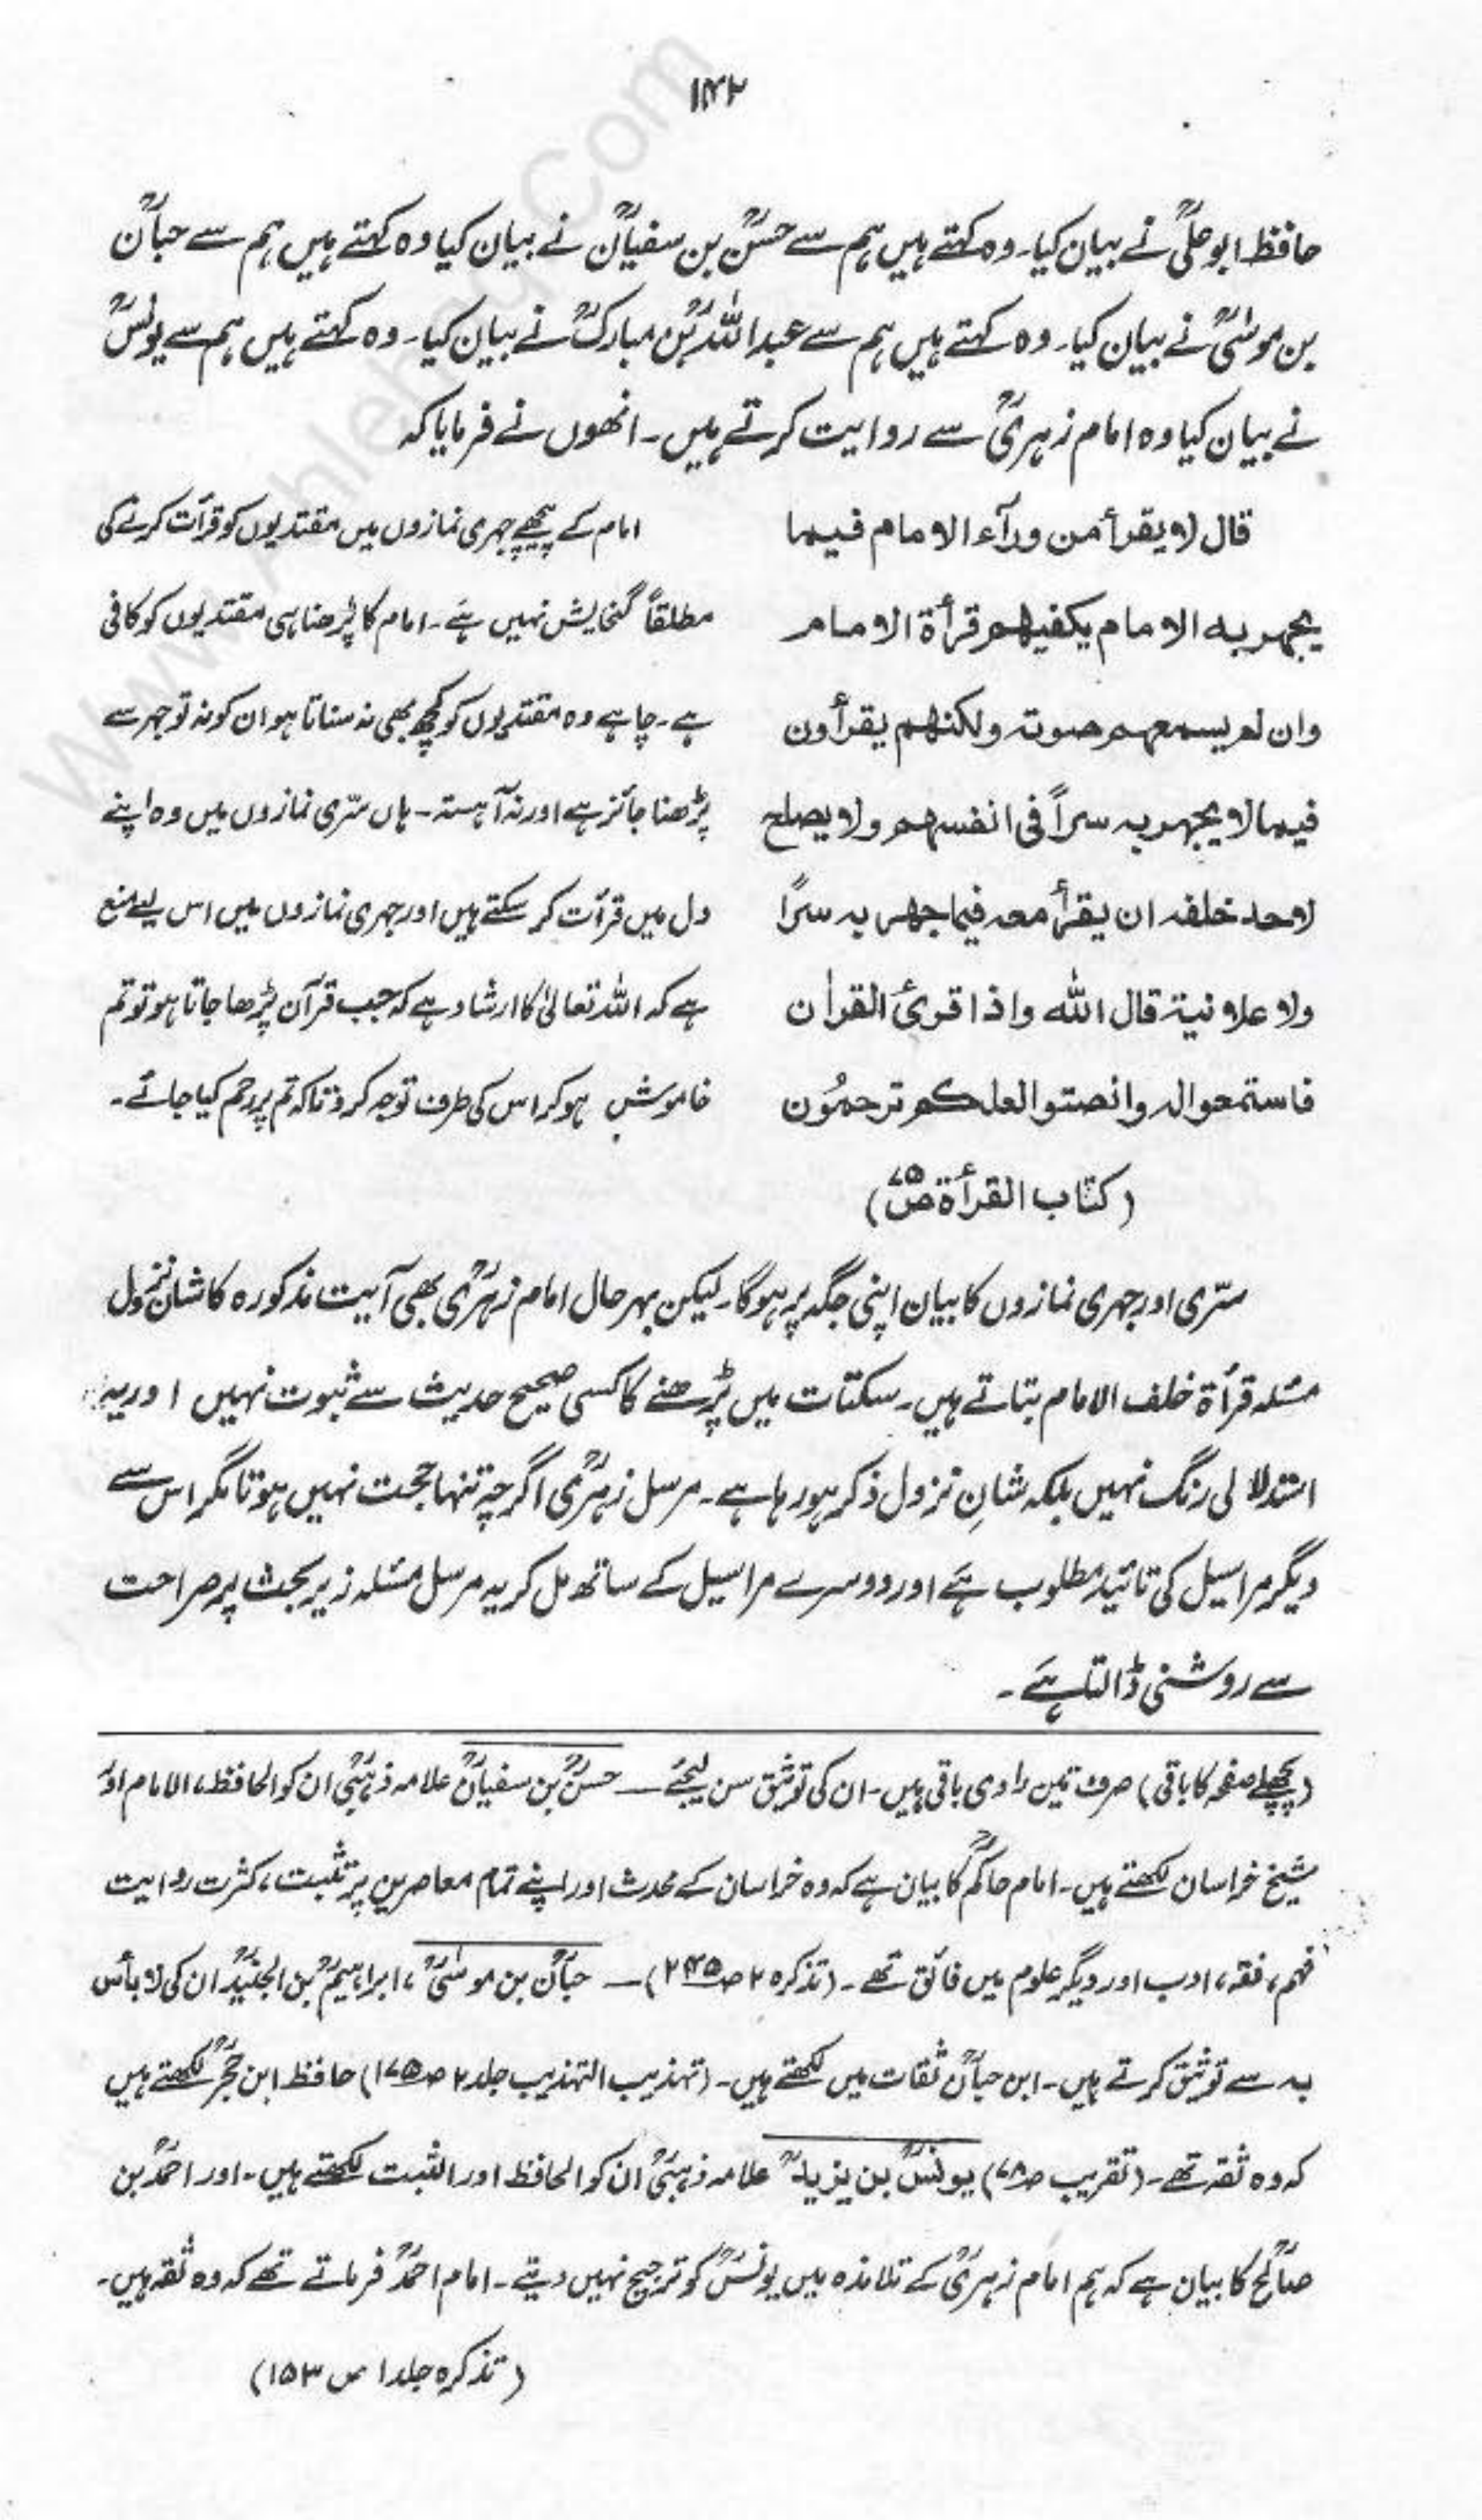 ۱۴۲
حافظ ابو علیؒ نے بیان کیا۔ وہ کہتے ہیں ہم سے حسنؒ بن سفیانؒ نے بیان کیا وہ کہتے ہیں ہم سے حبانؒ
بن موسٰیؒ نے بیان کیا۔ وہ کہتے ہیں ہم سے عبد اللہؒ بن مبارکؒ نے بیان کیا۔ وہ کہتے ہیں ہم سے یونسؒ
نے بیان کیا وہ امام زہریؒ سے روایت کرتے ہیں۔ انھوں نے فرمایا کہ
قال لا یقرأ من ورآء الامام فیما
یجھر بہ الامام یکفیھم قرأۃ الامام
وان لم یسمعھم صوتہ ولکنھم یقرأون
فیما لا یجھر بہ سراً فی انفسھم ولا یصلح
لاحد خلفہ ان یقرأ معہ فیما جھر بہ سرًا
ولا علانیۃ قال اللہ واذا قرئ القراٰن
فاستمعوا لہ وانصتوا لعلکم ترحمُون
(کتاب القرأۃ ص۷۵)
امام کے پیچھے جہری نمازوں میں مقتدیوں کو قرآت کرنے کی
مطلقاً گنجایش نہیں ہے۔ امام کا پڑھنا ہی مقتدیوں کو کافی
ہے۔ چاہے وہ مقتدیوں کو کچھ بھی نہ سناتا ہو ان کو نہ تو جہر سے
پڑھنا جائز ہے اور نہ آہستہ۔ ہاں سرّی نمازوں میں وہ اپنے
دل میں قرآت کر سکتے ہیں اور جہری نمازوں میں اس لیے منع
ہے کہ اللہ تعالیٰ کا ارشاد ہے کہ جب قرآن پڑھا جاتا ہو تو تم
خاموش ہو کر اس کی طرف توجہ کرو تاکہ تم پر رحم کیا جائے۔
سرّی اور جہری نمازوں کا بیان اپنی جگہ پر ہوگا۔ لیکن بہر حال امام زہریؒ بھی آیت مذکورہ کا شان نزول
مسئلہ قرأۃ خلف الامام بتاتے ہیں۔ سکتات میں پڑھنے کا کسی صحیح حدیث سے ثبوت نہیں اور یہ
استدلالی رنگ نہیں بلکہ شانِ نزول ذکر ہو رہا ہے۔ مرسل زہریؒ اگرچہ تنہا حجت نہیں ہوتا مگر اس سے
دیگر مراسیل کی تائید مطلوب ہے اور دوسرے مراسیل کے ساتھ مل کر یہ مرسل مسئلہ زیر بحث پر صراحت
سے روشنی ڈالتا ہے۔
(پچھلے صفحہ کا باقی) صرف تین راوی باقی ہیں۔ ان کی توثیق سن لیجئے — حسنؒ بن سفیانؒ علامہ ذہبیؒ ان کو الحافظ، الامام اور
شیخ خراسان لکھتے ہیں۔ امام حاکمؒ کا بیان ہے کہ وہ خراسان کے محدث اور اپنے تمام معاصرین پر تثبت، کثرت روایت
فہم، فقہ، ادب اور دیگر علوم میں فائق تھے۔ (تذکرہ ۲ ص۲۴۵) — حبانؒ بن موسٰیؒ، ابراہیمؒ بن الجنیدؒ ان کی لا بأس
بہ سے توثیق کرتے ہیں۔ ابن حبانؒ ثقات میں لکھتے ہیں۔ (تہذیب التہذیب جلد ۲ ص۱۷۵) حافظ ابن حجرؒ لکھتے ہیں
کہ وہ ثقہ تھے۔ (تقریب ص۷۸) یونسؒ بن یزیدؒ علامہ ذہبیؒ ان کو الحافظ اور الثبت لکھتے ہیں۔ اور احمدؒ بن
صالحؒ کا بیان ہے کہ ہم امام زہریؒ کے تلامذہ میں یونسؒ کو ترجیح نہیں دیتے۔ امام احمدؒ فرماتے تھے کہ وہ ثقہ ہیں۔
(تذکرہ جلد ۱ ص ۱۵۳)